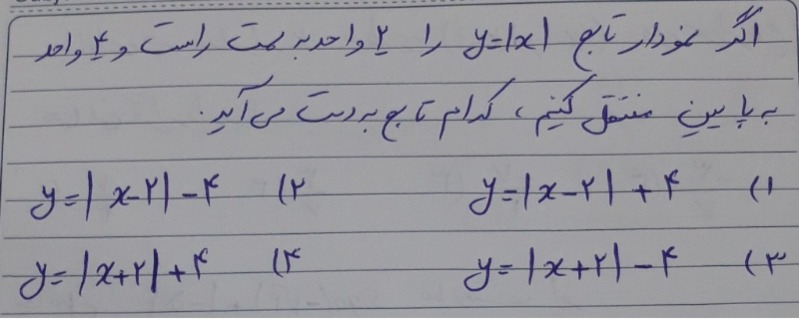 اگر نمودار تابع y=|x| را ۲ واحد به سمت راست و ۴ واحد
به پایین منتقل کنیم، کدام تابع به دست می آید.
۱) y=|x-۲|+۴ ۲) y=|x-۲|-۴
۳) y=|x+۲|-۴ ۴) y=|x+۲|+۴